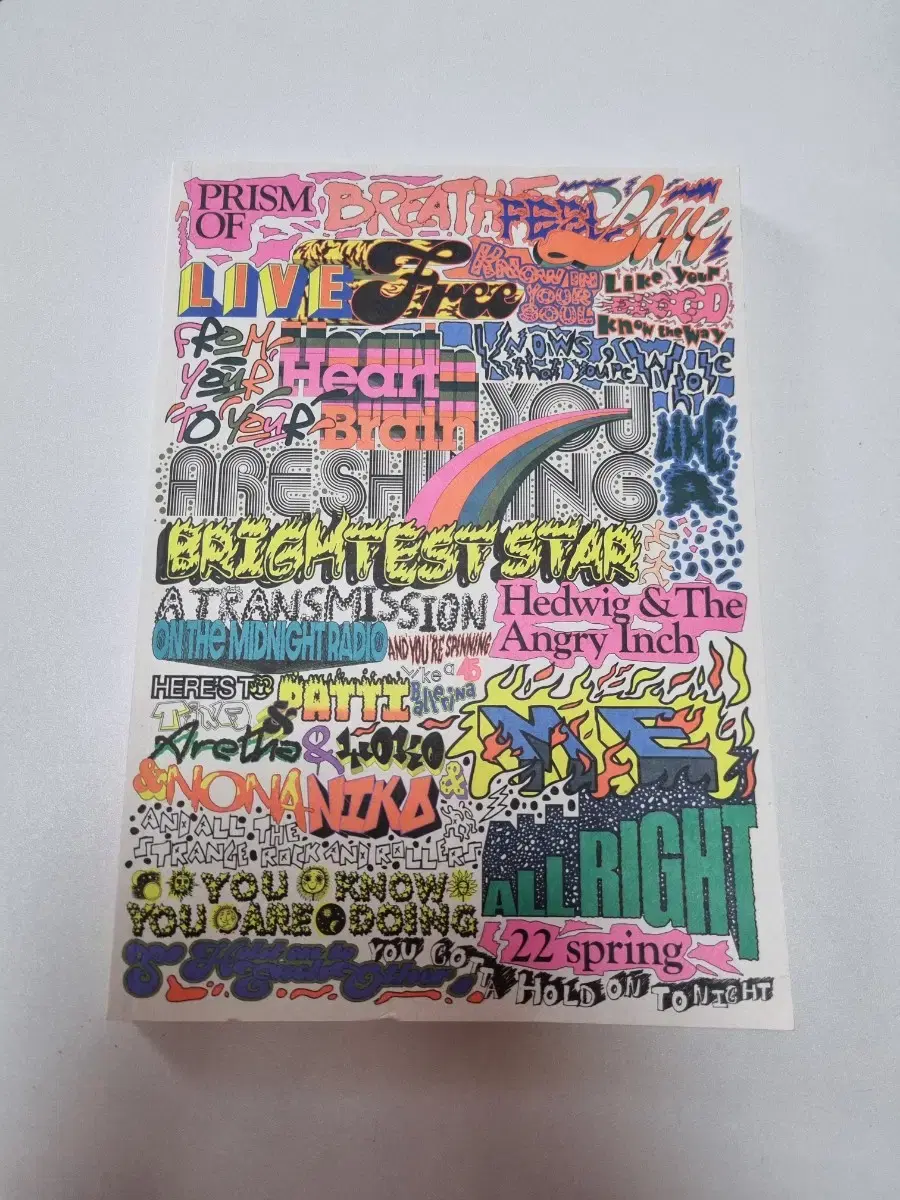 PRISM
OF
BREATHE FEEL Love
LIVE Free Know in
YOUR
SOUL
Like your
BLOOD
know the way
FROM
YOUR Heart
TO YOUR Brain
KNOWS
that you're WHOLE
YOU
ARE SHINING
LIKE
A
BRIGHTEST STAR
A TRANSMISSION
ON THE MIDNIGHT RADIO
AND YOU'RE SPINNING
like a 45
Ballerina
Hedwig & The
Angry Inch
HERE'S TO PATTI
TINA &
Aretha & YOKO
& NONA NIKO &
ME
AND ALL THE
STRANGE ROCK AND ROLLERS
ALL RIGHT
YOU KNOW
YOU ARE DOING
So Hold on to
Each Other
22 spring
YOU GOTTA HOLD ON TONIGHT